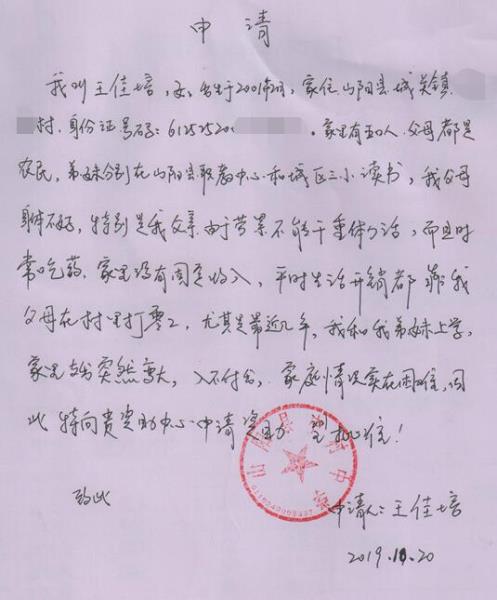 申请
我叫王佳培,女,出生于2001年,家住山阳县城关镇
村,身份证号码:61252520 。家里有五口人,父母都是
农民,弟妹分别在山阳县职教中心和城区三小读书,我父母
身体不好,特别是我父亲由于劳累不能干重体力活,而且时
常吃药。家里没有固定收入,平时生活开销都靠我
父母在村里打零工,尤其是最近几年,我和我弟妹上学,
家里支出突然高大,入不付出,家庭情况实在困难,因
此特向贵资助中心申请资助 望批准!
山阳县 村中
致此
申请人:王佳培
2019.10.20